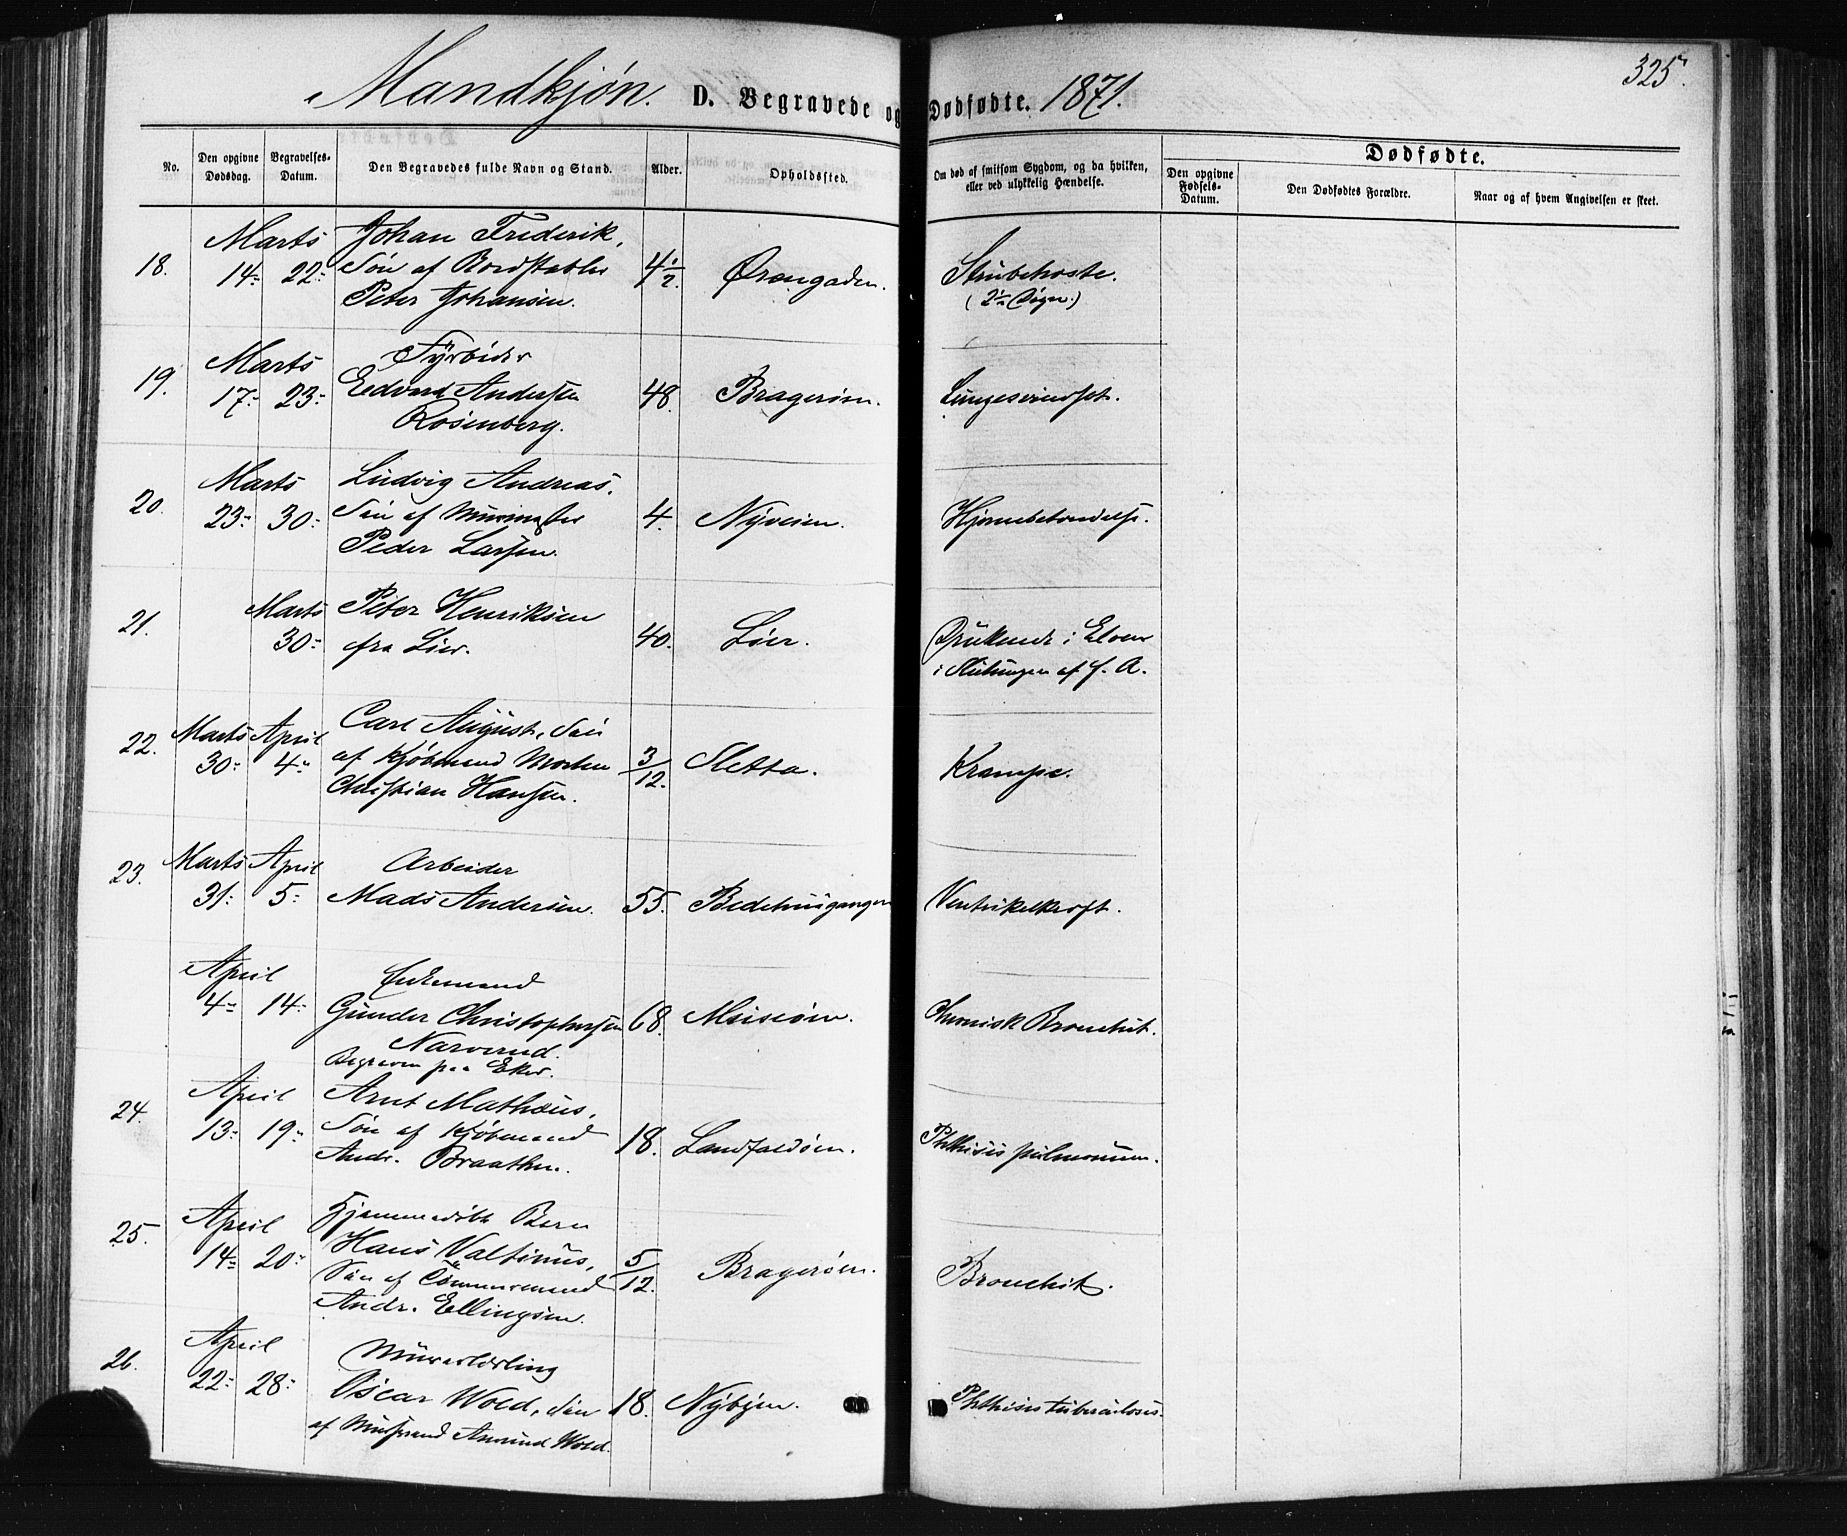 325.
Mandkjøn. D. Begravede og Dødfødte. 1871.
No.
Den opgivne Dødsdag.
Begravelses-Datum.
Den Begravedes fulde Navn og Stand.
Alder.
Opholdssted.
Om død af smitsom Sygdom, og da hvilken, eller ved ulykkelig Hændelse.
Dødfødte.
Den opgivne Fødsels-Datum.
Den Dødfødtes Forældre.
Naar og af hvem Angivelsen er skeet.
18. Marts 14 22 Johan Frederik, 4½ Ørengaden. Strubehoste.
Søn af Bordstabler (2½ Døgn.)
Peter Johansen.
19. Marts 17 23 Fyrbøder 48. Bragerøen. Lungesvindsot.
Edvard Andersen
Rosenberg.
20. Marts 23 30 Ludvig Andreas, 4. Nyveien. Hjernebetændelse.
Søn af Murmester
Peder Larsen.
21. Marts 30 Peter Henriksen 40. Lier. Druknede i Elven
fra Lier. i Slutningen af f. A.
22. Marts 30 April 4 Carl August, Søn 3/12. Sletta. Krampe.
af Kjøbmand Morten
Christian Hansen.
23. Marts 31 April 5 Arbeider 55. Bedehuusgangen Ventrikelkræft.
Mads Andersen.
April 4 14 Enkemand 68. Meiseøen. Chronisk Bronchit.
Gunder Christophersen
Narverud.
Begraven paa Eker.
24. April 13 19 Arnt Mathæus, 18. Landfaldøen. Phthisis pulmonum.
Søn af Kjøbmand
Andr. Braathen.
25. April 14 20 Hjemmedøbt Barn 5/12. Bragerøen. Bronchit.
Hans Valtinus,
Søn af Tømmermand
Andr. Ellingsen.
26. April 22 28 Murerlærling 18. Nybyen. Phthisis tuberculosis.
Oscar Wold, Søn
af Amund Wold.